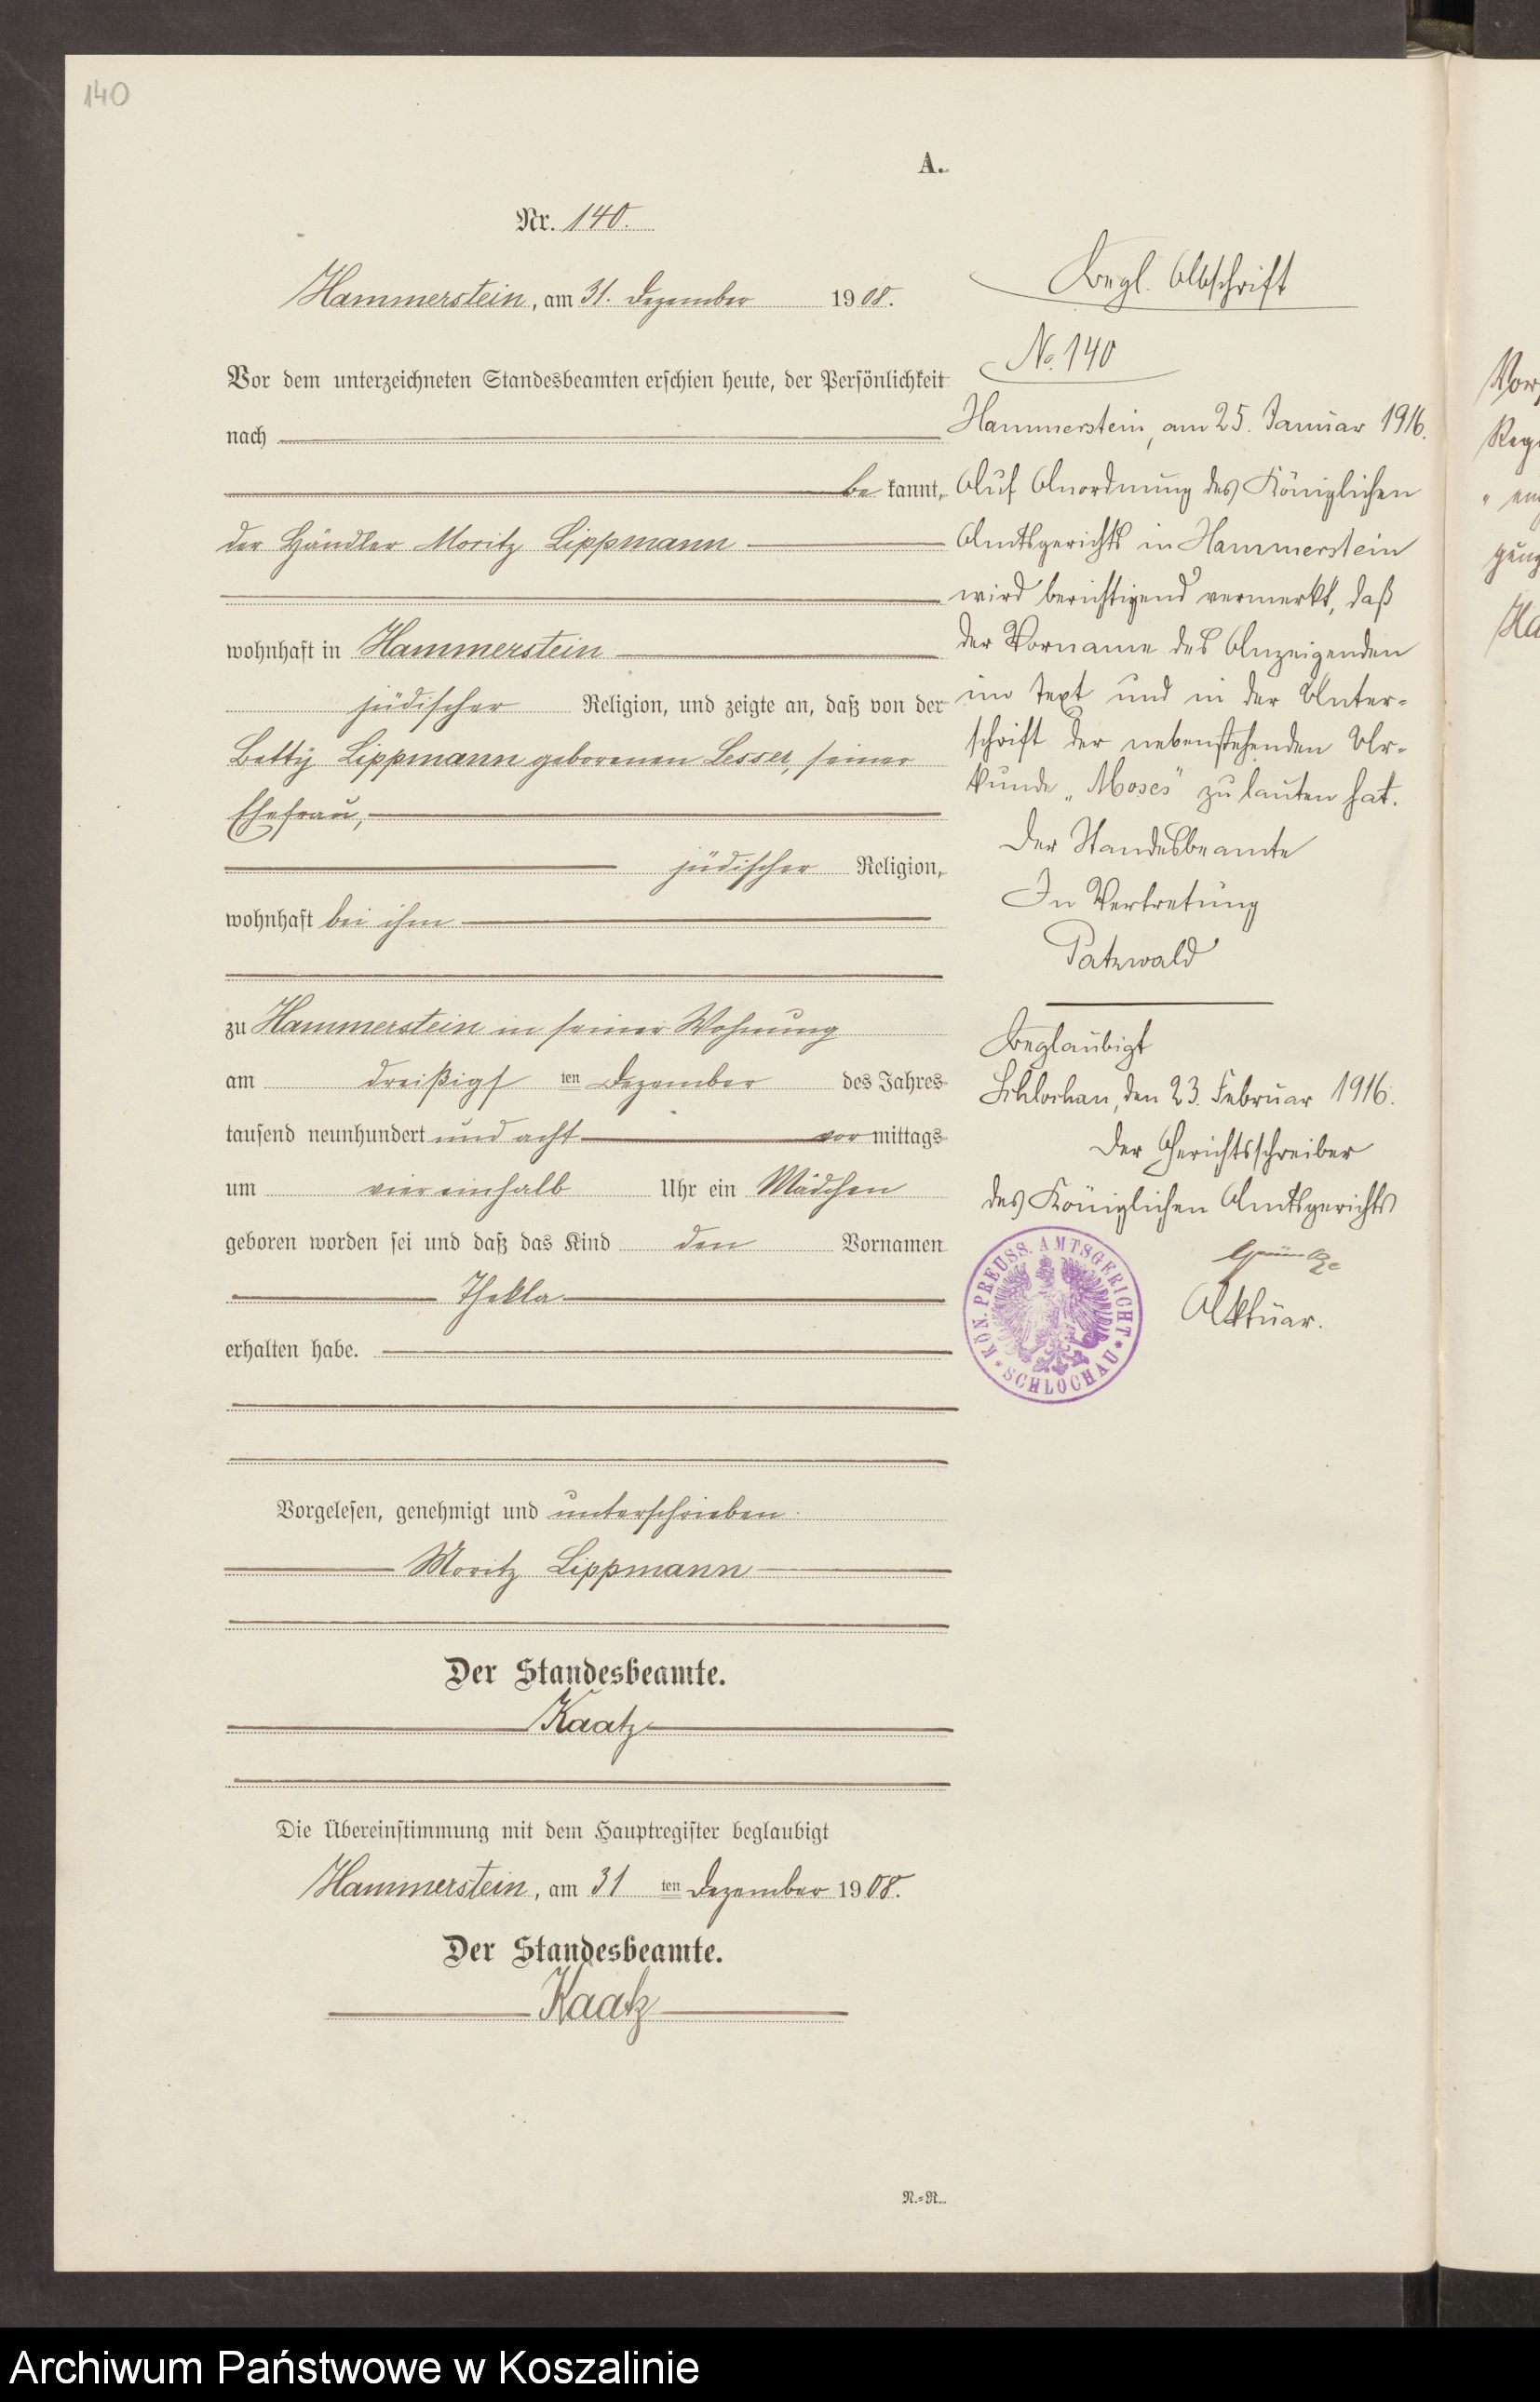 140
A.
Nr. 140.
Hammerstein, am 31. Dezember 1908.
Vor dem unterzeichneten Standesbeamten erschien heute, der Persönlichkeit
nach
be kannt,
der Händler Moritz Lippmann
wohnhaft in Hammerstein
jüdischer Religion, und zeigte an, daß von der
Betty Lippmann geborenen Lesser, seiner
Ehefrau,
jüdischer Religion,
wohnhaft bei ihm
zu Hammerstein in seiner Wohnung
am dreißigs ten Dezember des Jahres
tausend neunhundert und acht vor mittags
um vier einhalb Uhr ein Mädchen
geboren worden sei und daß das Kind den Vornamen
Thekla
erhalten habe.
Vorgelesen, genehmigt und unterschrieben.
Moritz Lippmann
Der Standesbeamte.
Kaatz
Die Übereinstimmung mit dem Hauptregister beglaubigt
Hammerstein, am 31 ten Dezember 1908.
Der Standesbeamte.
Kaatz
N.=R.
Begl. Abschrift
No. 140
Hammerstein, am 25. Januar 1916.
Auf Anordnung des Königlichen
Amtsgerichts in Hammerstein
wird berichtigend vermerkt, daß
der Vorname des Anzeigenden
im Text und in der Unter-
schrift der nebenstehenden Ur-
kunde „Moses" zu lauten hat.
Der Standesbeamte
In Vertretung
Patzwald
Beglaubigt
Schlochau, den 23. Februar 1916.
Der Gerichtsschreiber
des Königlichen Amtsgerichts
Aktuar.
KÖN. PREUSS. AMTSGERICHT
* SCHLOCHAU *
Archiwum Państwowe w Koszalinie